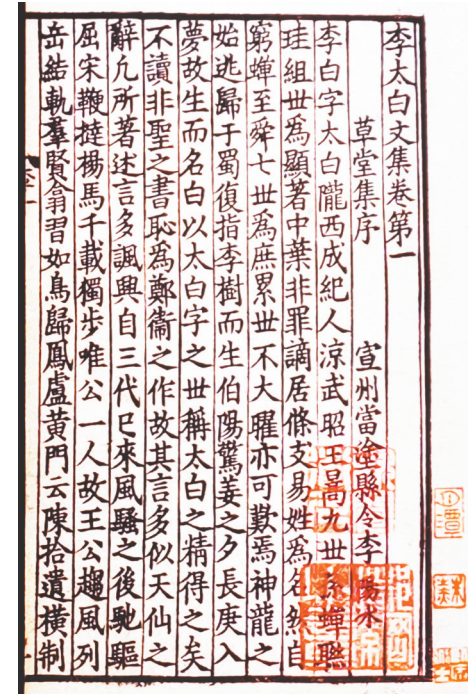 李太白文集卷第一
草堂集序 宣州當塗縣令李陽氷
李白字太白隴西成紀人涼武昭王暠九世孫蟬聮
珪組世爲顯著中葉非罪謫居條支易姓爲名然自
窮蟬至舜七世爲庶累世不大曜亦可歎焉神龍之
始逃歸于蜀復指李樹而生伯陽驚姜之夕長庚入
夢故生而名白以太白字之世稱太白之精得之矣
不讀非聖之書恥爲鄭衞之作故其言多似天仙之
辭凢所著述言多諷興自三代已來風騷之後馳驅
屈宋鞭撻楊馬千載獨步唯公一人故王公趨風列
岳結軌羣賢翕習如鳥歸鳳盧黃門云陳拾遺橫制